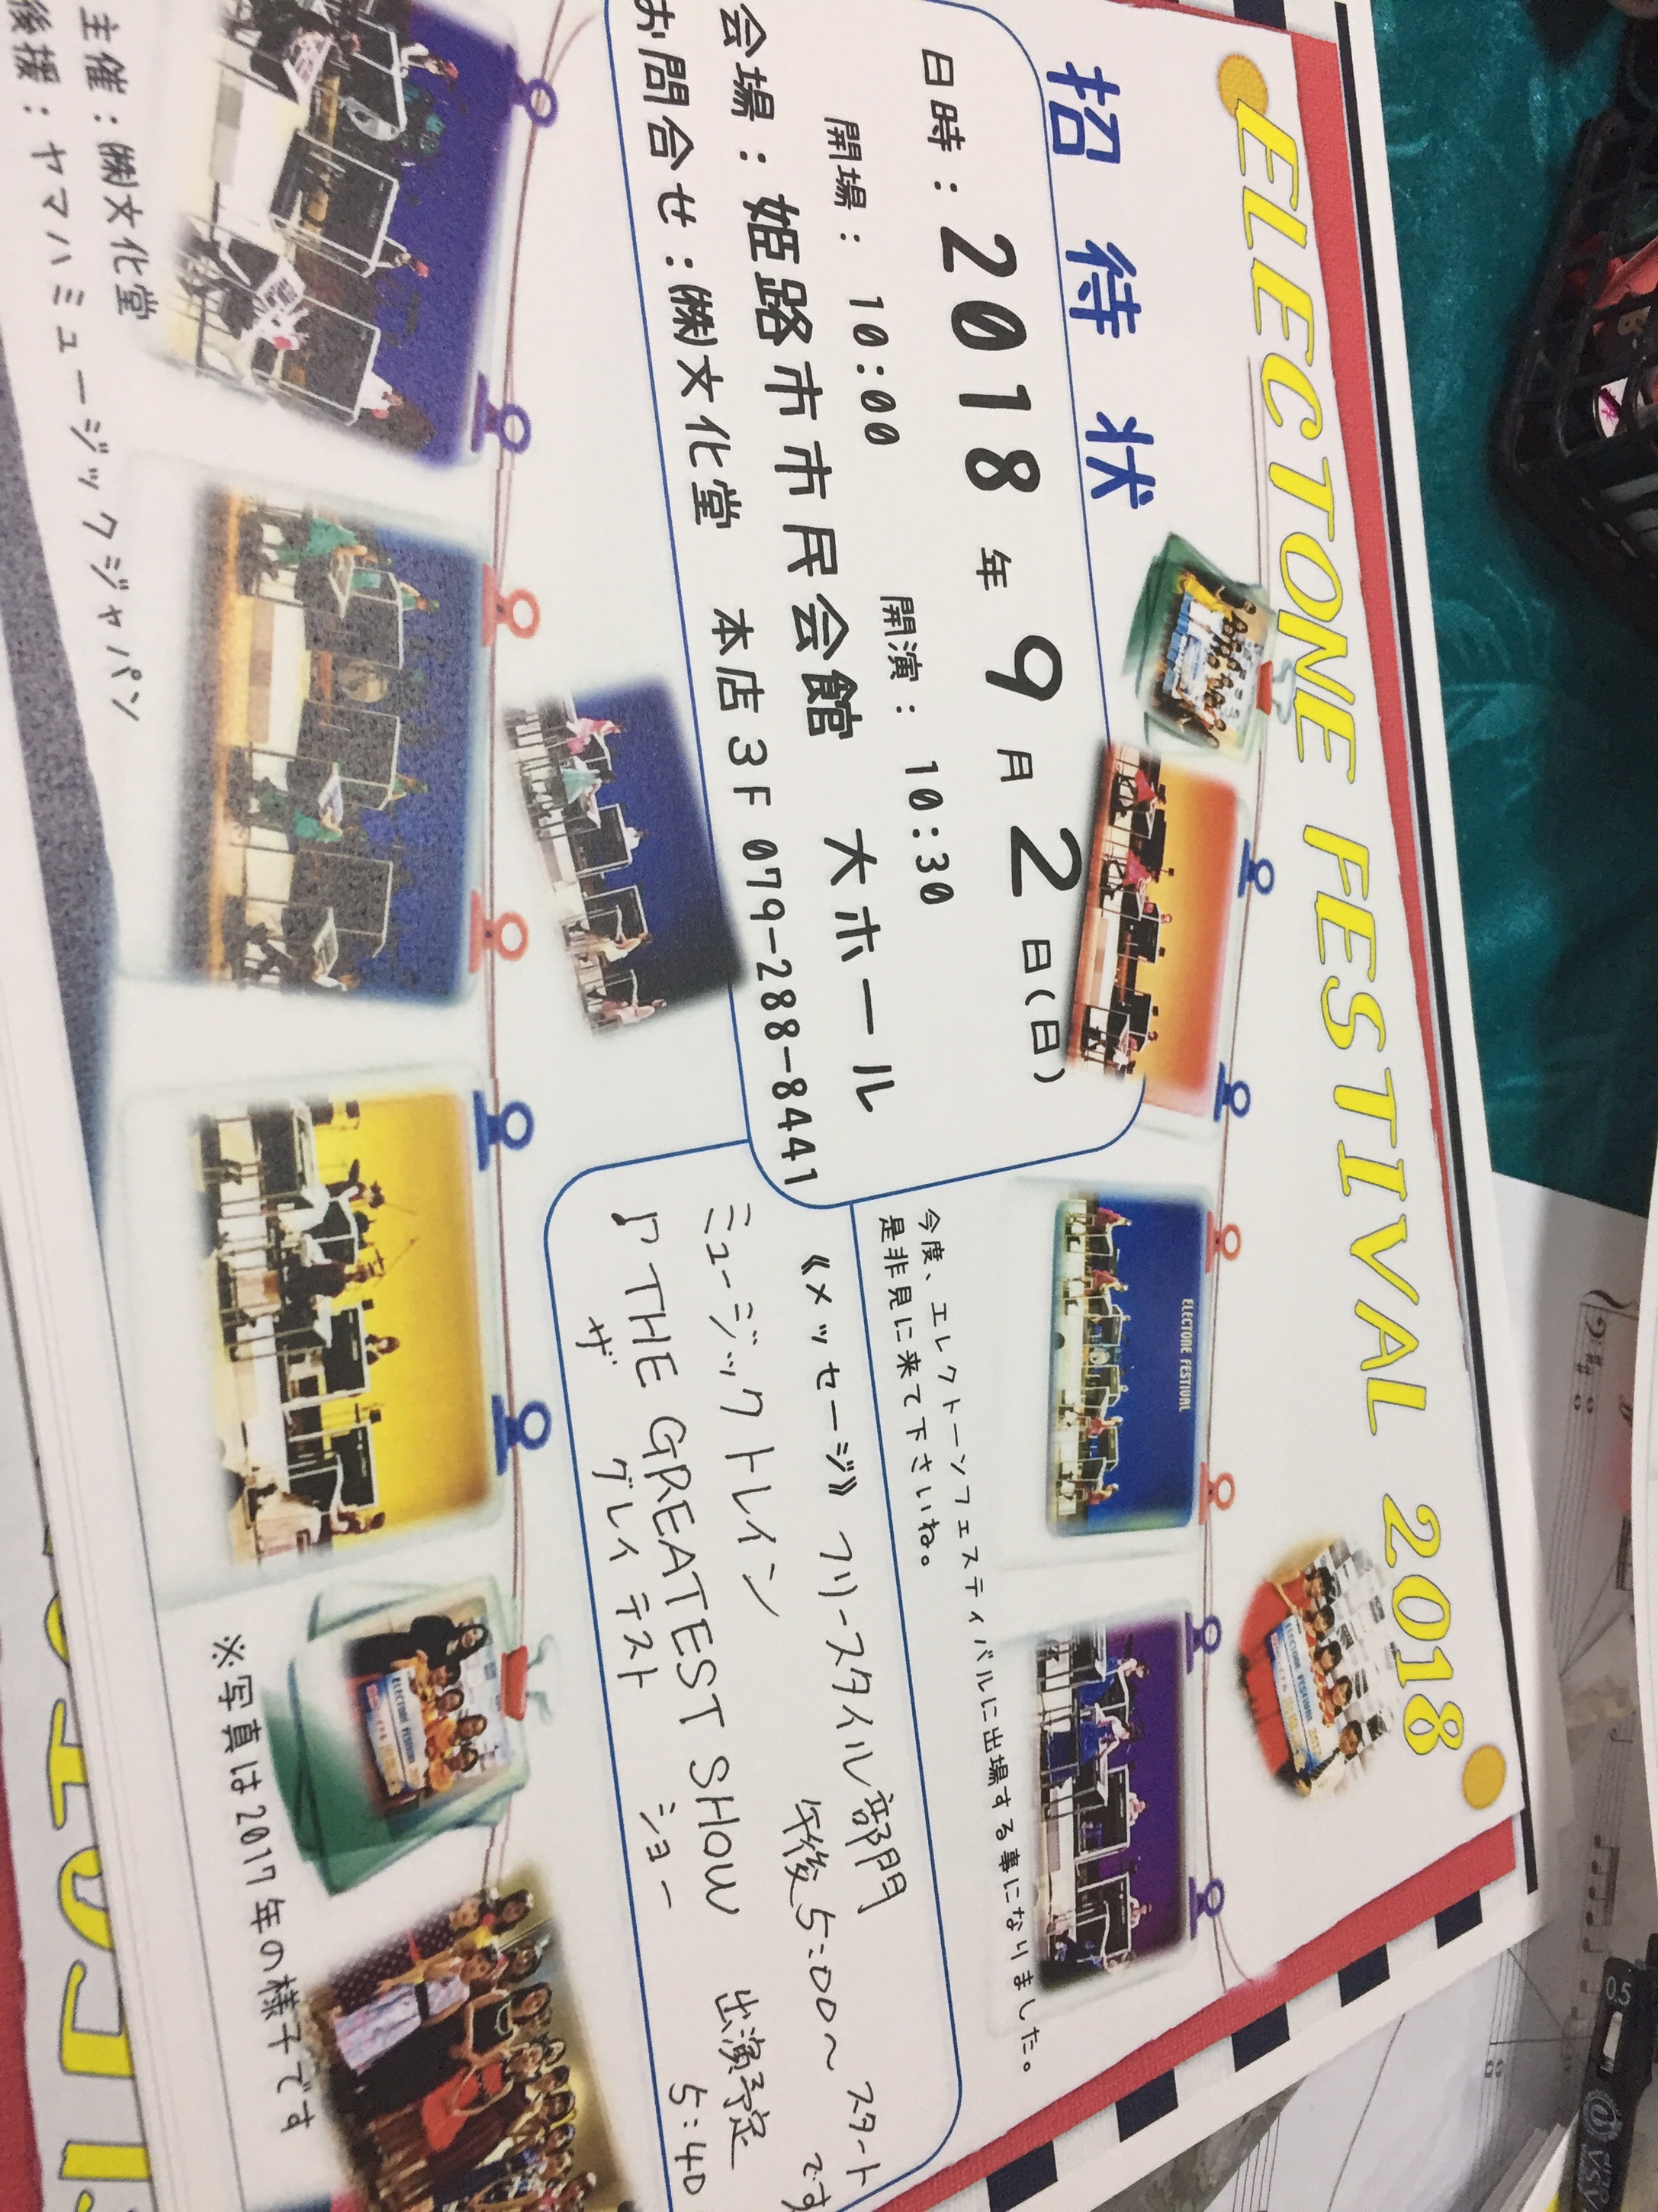 ELECTONE FESTIVAL 2018
招待状
日時：2018年9月2日(日)
開場：10:00　開演：10:30
会場：姫路市市民会館　大ホール
お問合せ：㈱文化堂　本店３Ｆ 079-288-8441
ELECTONE FESTIVAL
今度、エレクトーンフェスティバルに出場する事になりました。
是非見に来て下さいね。
《メッセージ》 フリースタイル部門
午後5:00〜 スタート
です
ミュージックトレイン　出演予定
♪ THE GREATEST SHOW　5:40
ザ　グレイテスト　ショー
ELECTONE FESTIVAL
※写真は2017年の様子です
主催：㈱文化堂
後援：ヤマハミュージックジャパン
05